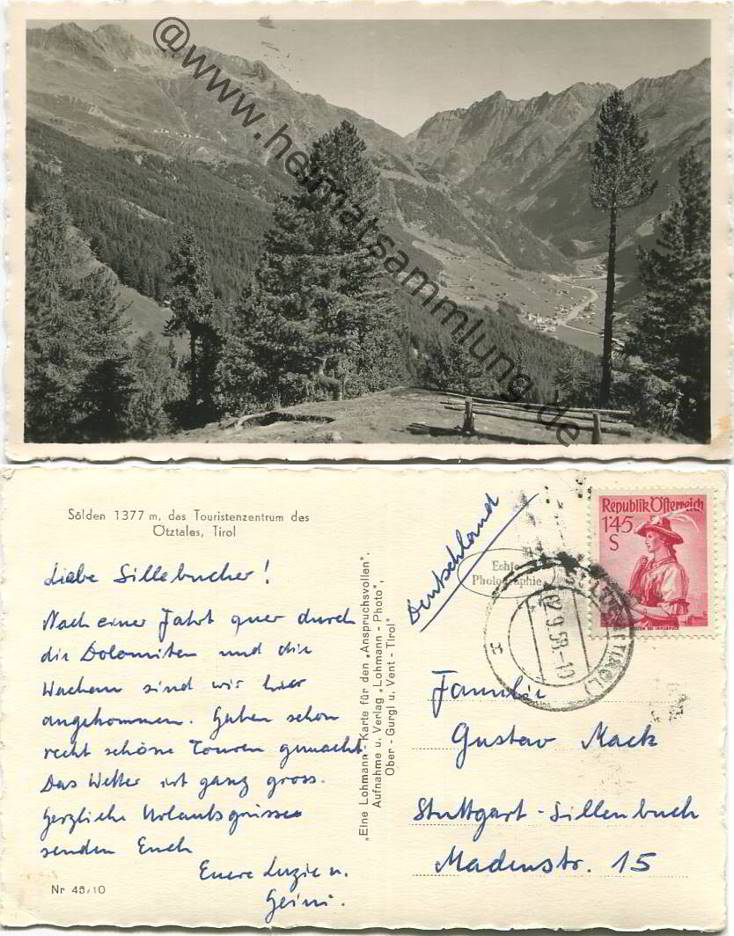 @www.heimatsammlung.de
Sölden 1377 m, das Touristenzentrum des
Ötztales, Tirol
Liebe Sillebucher!
Nach einer Fahrt quer durch
die Dolomiten und die
Wachau sind wir hier
angekommen. Haben schon
recht schöne Touren gemacht
Das Wetter ist ganz gross.
Herzliche Urlaubsgrüsse
senden Euch
Euere Luzie u.
Heini.
Nr 48/10
„Eine Lohmann-Karte für den „Anspruchsvollen".
Aufnahme u. Verlag „Lohmann-Photo",
Ober-Gurgl u. Vent-Tirol"
Deutschland
Echte
Photographie
Republik Österreich
1·45
S
(TIROL)
Familie
Gustav Mack
Stuttgart-Sillenbuch
Madenstr. 15